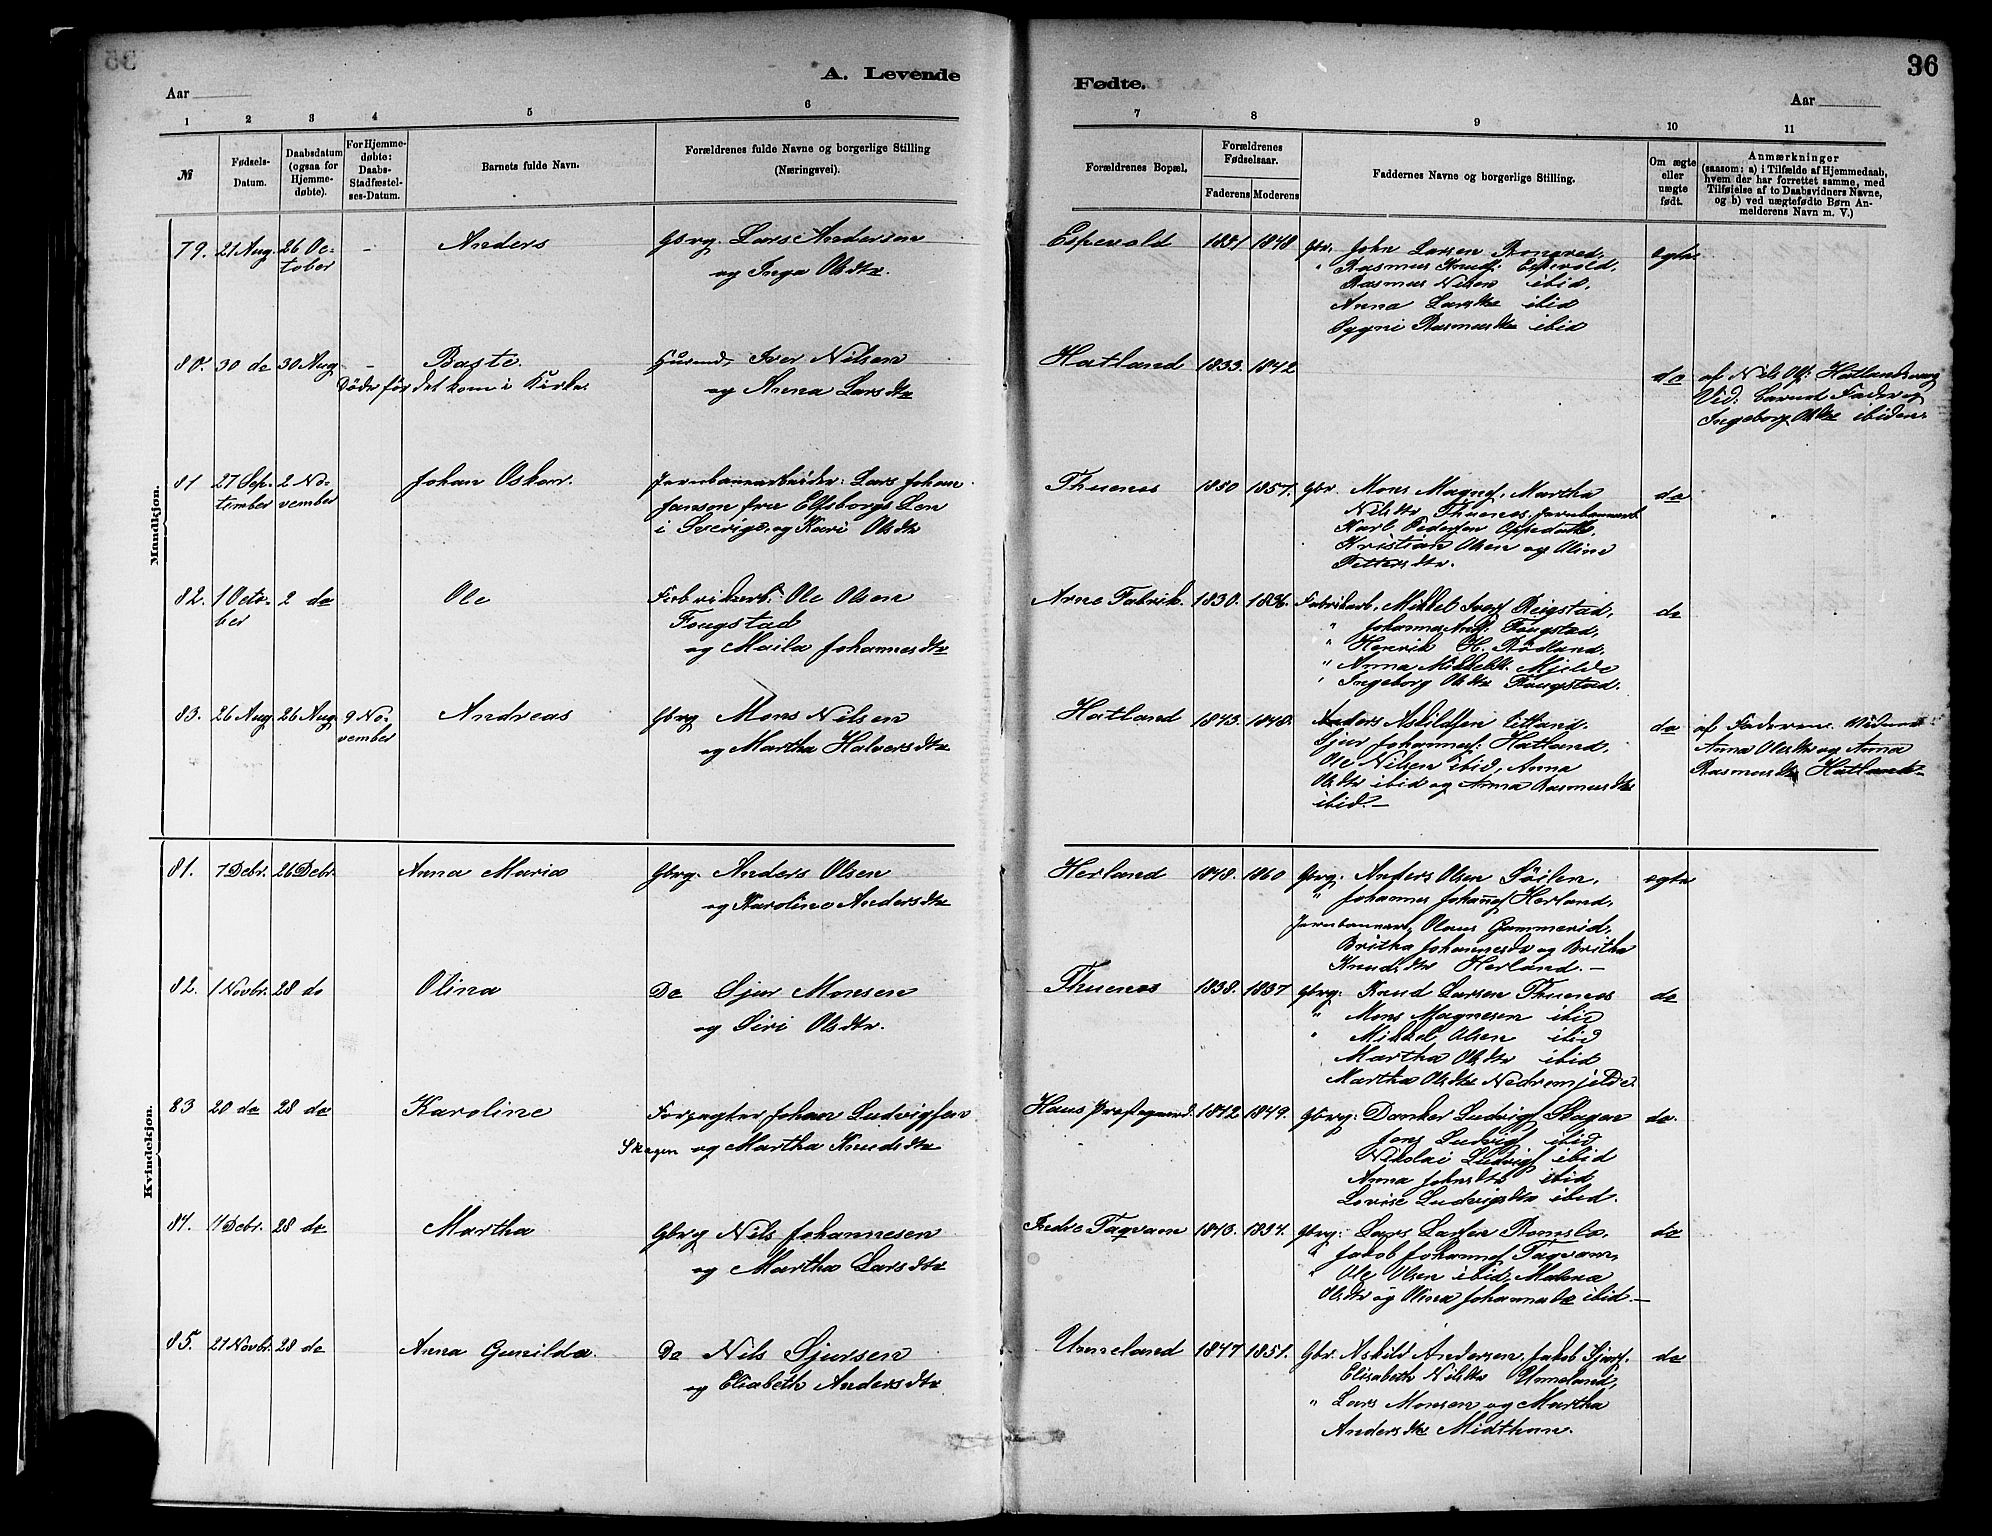 A. Levende
Fødte.
36
Aar
Aar
1 2 3 4 5 6 7 8 9 10 11
№
Fødsels-
Datum.
Daabsdatum
(ogsaa for
Hjemme-
døbte).
For Hjemme-
døbte:
Daabs-
Stadfæstel-
ses-Datum.
Barnets fulde Navn.
Forældrenes fulde Navne og borgerlige Stilling
(Næringsvei).
Forældrenes Bopæl.
Forældrenes
Fødselsaar.
Faderens Moderens
Faddernes Navne og borgerlige Stilling.
Om ægte
eller
uægte
født.
Anmærkninger
(saasom: a) i Tilfælde af Hjemmedaab,
hvem der har forrettet samme, med
Tilføielse af to Daabsvidners Navne,
og b) ved uægtefødte Børn An-
melderens Navn m. V.)
Mandkjøn.
79. 21 Aug. 26 Oc-
tober
-
Anders
Gbrg. Lars Andersen
og Inga Olsdtr.
Espevold 1841 1848
Gbr. John Larsen
" Rasmus Knuds: Espevold,
Rasmus Nilsen ibid,
Anna Larsdtr ibid
Sygni Rasmusdtr ibid
egte
80. 30 do 30 Aug
-
Baste.
Døde før det kom i Kirke.
Husmd. Iver Nilsen
og Anna Larsdtr
Hatland 1833. 1842
do
af Nils Ols: Hatlandsvaag
Vid: Barnets Fader og
Ingeborg Olsdtr ibidem.
81 27 Sep-
tember
2 No-
vember
Johan Oskar.
Jernbanearbeider: Lars Johan
Janson fra Elfsborgs Len
i Sverige, og Kari Olsdtr
Thuenes 1850 1857.
Gbr. Mons Magnes, Martha
Nilsdtr Thuenes, Jernbanearb.
Karl Pedersen
Kristian Olsen og Oline
Pettersdtr.
do
82. 1 Octo-
ber
2 do
Ole
Fabrikarb: Ole Olsen
Fougstad
og Maila Johannesdtr
Arne Fabrik. 1830. 1836.
Fabrikarb. Mikkel Ivers Reigstad,
" Johannes And: Fougstad,
" Henrik H. Rødland,
" Anna Mikkelsdtr Mjelde
" Ingeborg Olsdtr Fougstad.
do
83. 26 Aug. 26 Aug. 9 No-
vember
Andreas
Gbrg Mons Nilsen
og Martha Halversdtr
Hatland 1843. 1848.
Anders Askildsen Litland.
Sjur Johannes: Hatland,
Ole Nilsen ibid, Anna
Olsdtr ibid og Anna Rasmusdtr
ibid. —
do
af Faderen. Vidner
Anna Olsdtr og Anna
Rasmusdtr Hatland
Kvindekjøn.
81. 7 Debr. 26 Debr.
Anna Maria
Gbrg. Anders Olsen
og Karoline Andersdtr
Herland 1848. 1860
Gbrg: Anders Olsen Søilen,
" Johannes Johannes Herland,
Jernbanearb. Olaus Gammerid,
Britha Johannesdtr og Britha
Knudsdtr Herland. —
egte
82. 1 Novbr. 28 do
Olina
Do Sjur Monsen
og Siri Olsdtr.
Thuenes 1838. 1837
Gbrg: Knud Larsen Thuenes
" Mons Magnesen ibid
" Mikkel Olsen ibid
Martha Olsdtr ibid
Martha Olsdtr Nedremjelde.
do
83 20 do 28 do
Karoline
Forpagter Johan Ludvigsen
Skagen og Martha Knudsdtr
Haus Præstegaard. 1842 1849.
Gbrg: Danker Ludvigs Skagen
Jens Ludvigs ibid
Nikolai Ludvigs ibid
Anna Johnsdtr ibid
Lovise Ludvigsdtr ibid.
do.
84. 11 Debr. 28 do
Martha
Gbrg Nils Johannesen
og Martha Larsdtr
Indre Tagvam 1843. 1834.
Gbrg: Lars Larsen Romslo,
" Jakob Johannes Tagvam,
" Ole Olsen ibid, Malena
Olsdtr og Olina Johannesdtr ibid. —
do
85. 21 Novbr. 28 do
Anna Gunilda.
Do Nils Sjursen
og Elisabeth Andersdtr
Unneland 1847 1851.
Gbr. Askild Andersen, Jakob Sjurs.
Elisabeth Nilsdtr Unneland,
" Lars Monsen og Martha
Andersdtr Midthun.
do